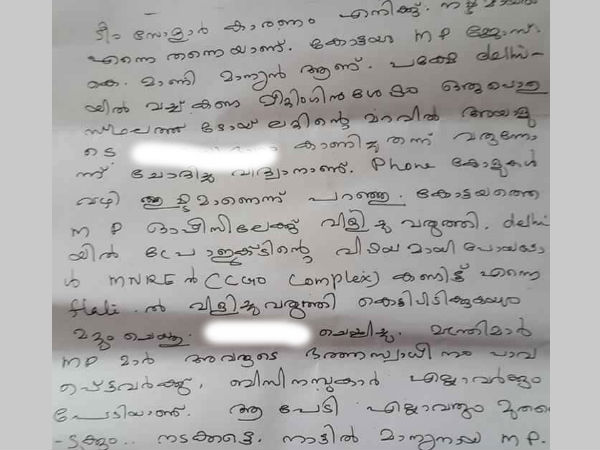 ടീം സോളാർ കാരണം എനിക്ക്. നഷ്ട
എന്നെ തന്നെയാണ്. കോട്ടയം MP ജോസ്.
കെ. മാണി മാന്യൻ ആണ്. പക്ഷേ delhi-
യിൽ വച്ച് കണ്ട മീറ്റിംഗിൻശേഷം ഒരുപൊതു
സ്ഥലത്ത് ടോയ്‌ലറ്റിന്റെ മറവിൽ അയാളു
ടെ കാണിച്ചുതന്ന് വരുന്നോ
ന്ന് ചോദിച്ച വിദ്വാനാണ്. Phone കോളുകൾ
വഴി ഇഷ്ടമാണെന്ന് പറഞ്ഞു. കോട്ടയത്തെ
MP ഓഫീസിലേക്ക് വിളിച്ചു വരുത്തി. delhi
യിൽ പ്രോജക്ടിന്റെ വിഷയമായി പോയപ്പോ
ൾ MNRE ൽ (CGO Complex) കണ്ടിട്ട് എന്നെ
ൽ വിളിച്ചുവരുത്തി കെട്ടിപിടിക്കുകയും
മറ്റും ചെയ്തു. ചെയ്യിച്ചു. മന്ത്രിമാർ
MP മാർ അവരുടെ ഭരണസ്വാധീനം പാവ
പ്പെട്ടവർക്കു, ബിസിനസ്സുകാർ എല്ലാവർക്കും
പേടിയാണ്. ആ പേടി എല്ലാവരും മുതലെ
-ടുക്കും.. നടക്കട്ടെ. നാട്ടിൽ മാന്യനായ MP.